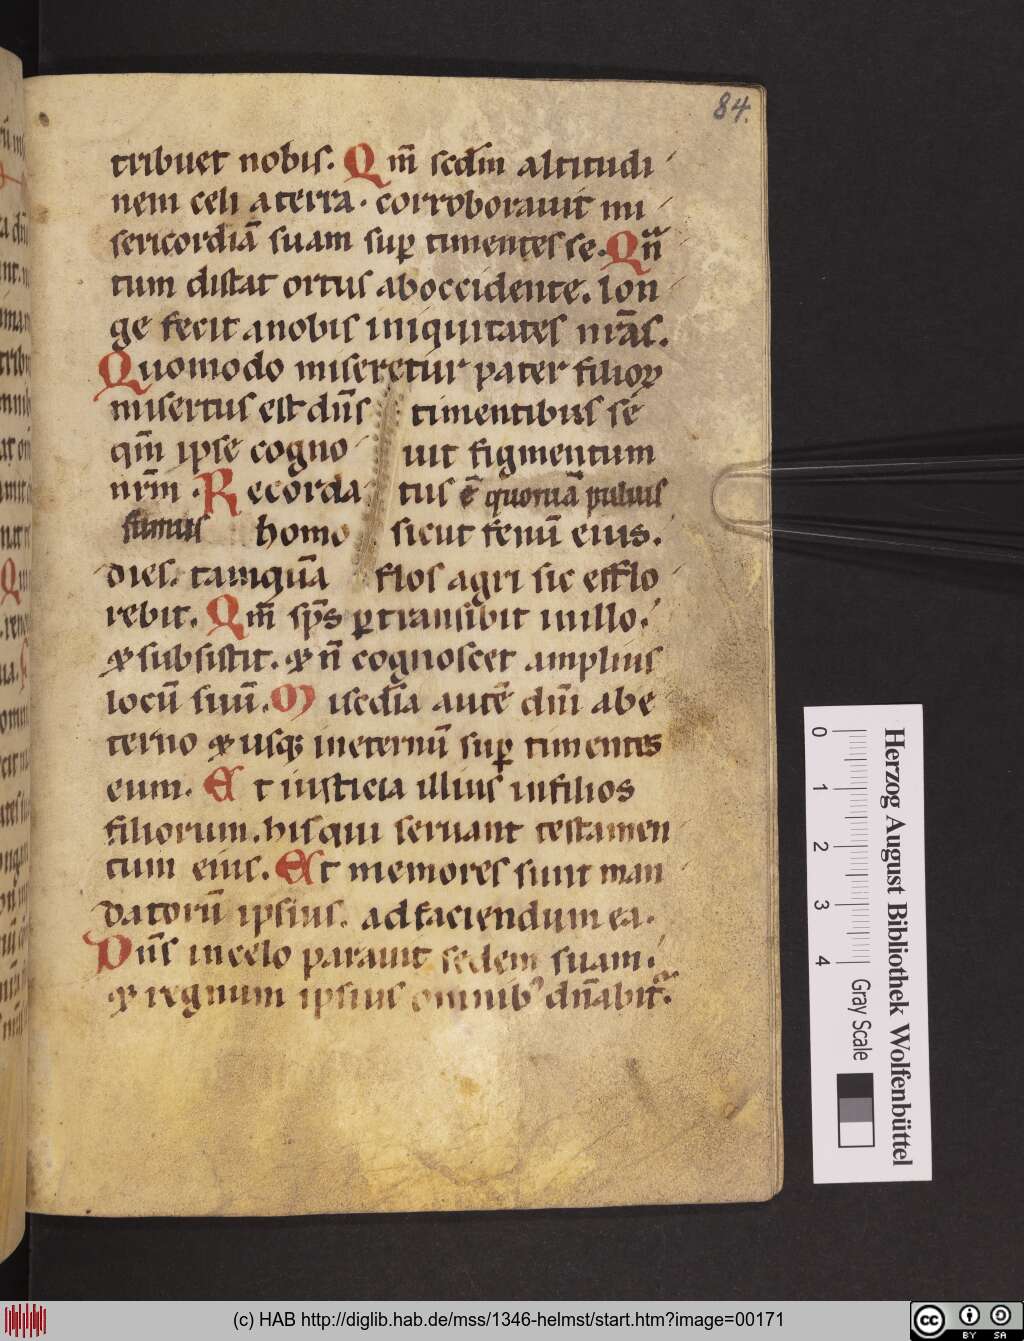 84.
tribuet nobis. Qm̄ scdm̄ altitudi
nem celi a terra. corroborauit mi
sericordiā suam sup timentes se. Qn̄
tum distat ortus ab occidente. lon
ge fecit a nobis iniquitates nrās.
Quomodo miseretur pater filioꝝ
misertus est dn̄s timentibus se
qm̄ ipse cogno uit figmentum
nrm̄. Recorda tus ē quoniā puluis
sumus homo sicut fenū eius.
dies. tamquā flos agri sic efflo
rebit. Qm̄ sp̄s ꝑtransibit in illo.
⁊ subsistit. ⁊ n̄ cognoscet amplius
locū suū. Misc̄dia autē dn̄i abe
terno ⁊ usqꝫ in eternū sup timentes
eum. Et iusticia illius in filios
filiorum. his qui seruant testamen
tum eius. Et memores sunt man
datorū ipsius. ad faciendum ea.
Dn̄s in celo parauit sedem suam.
⁊ regnum ipsius omnibꝰ dn̄abit.
0 1 2 3 4 Gray Scale
Herzog August Bibliothek Wolfenbüttel
(c) HAB http://diglib.hab.de/mss/1346-helmst/start.htm?image=00171
cc BY SA